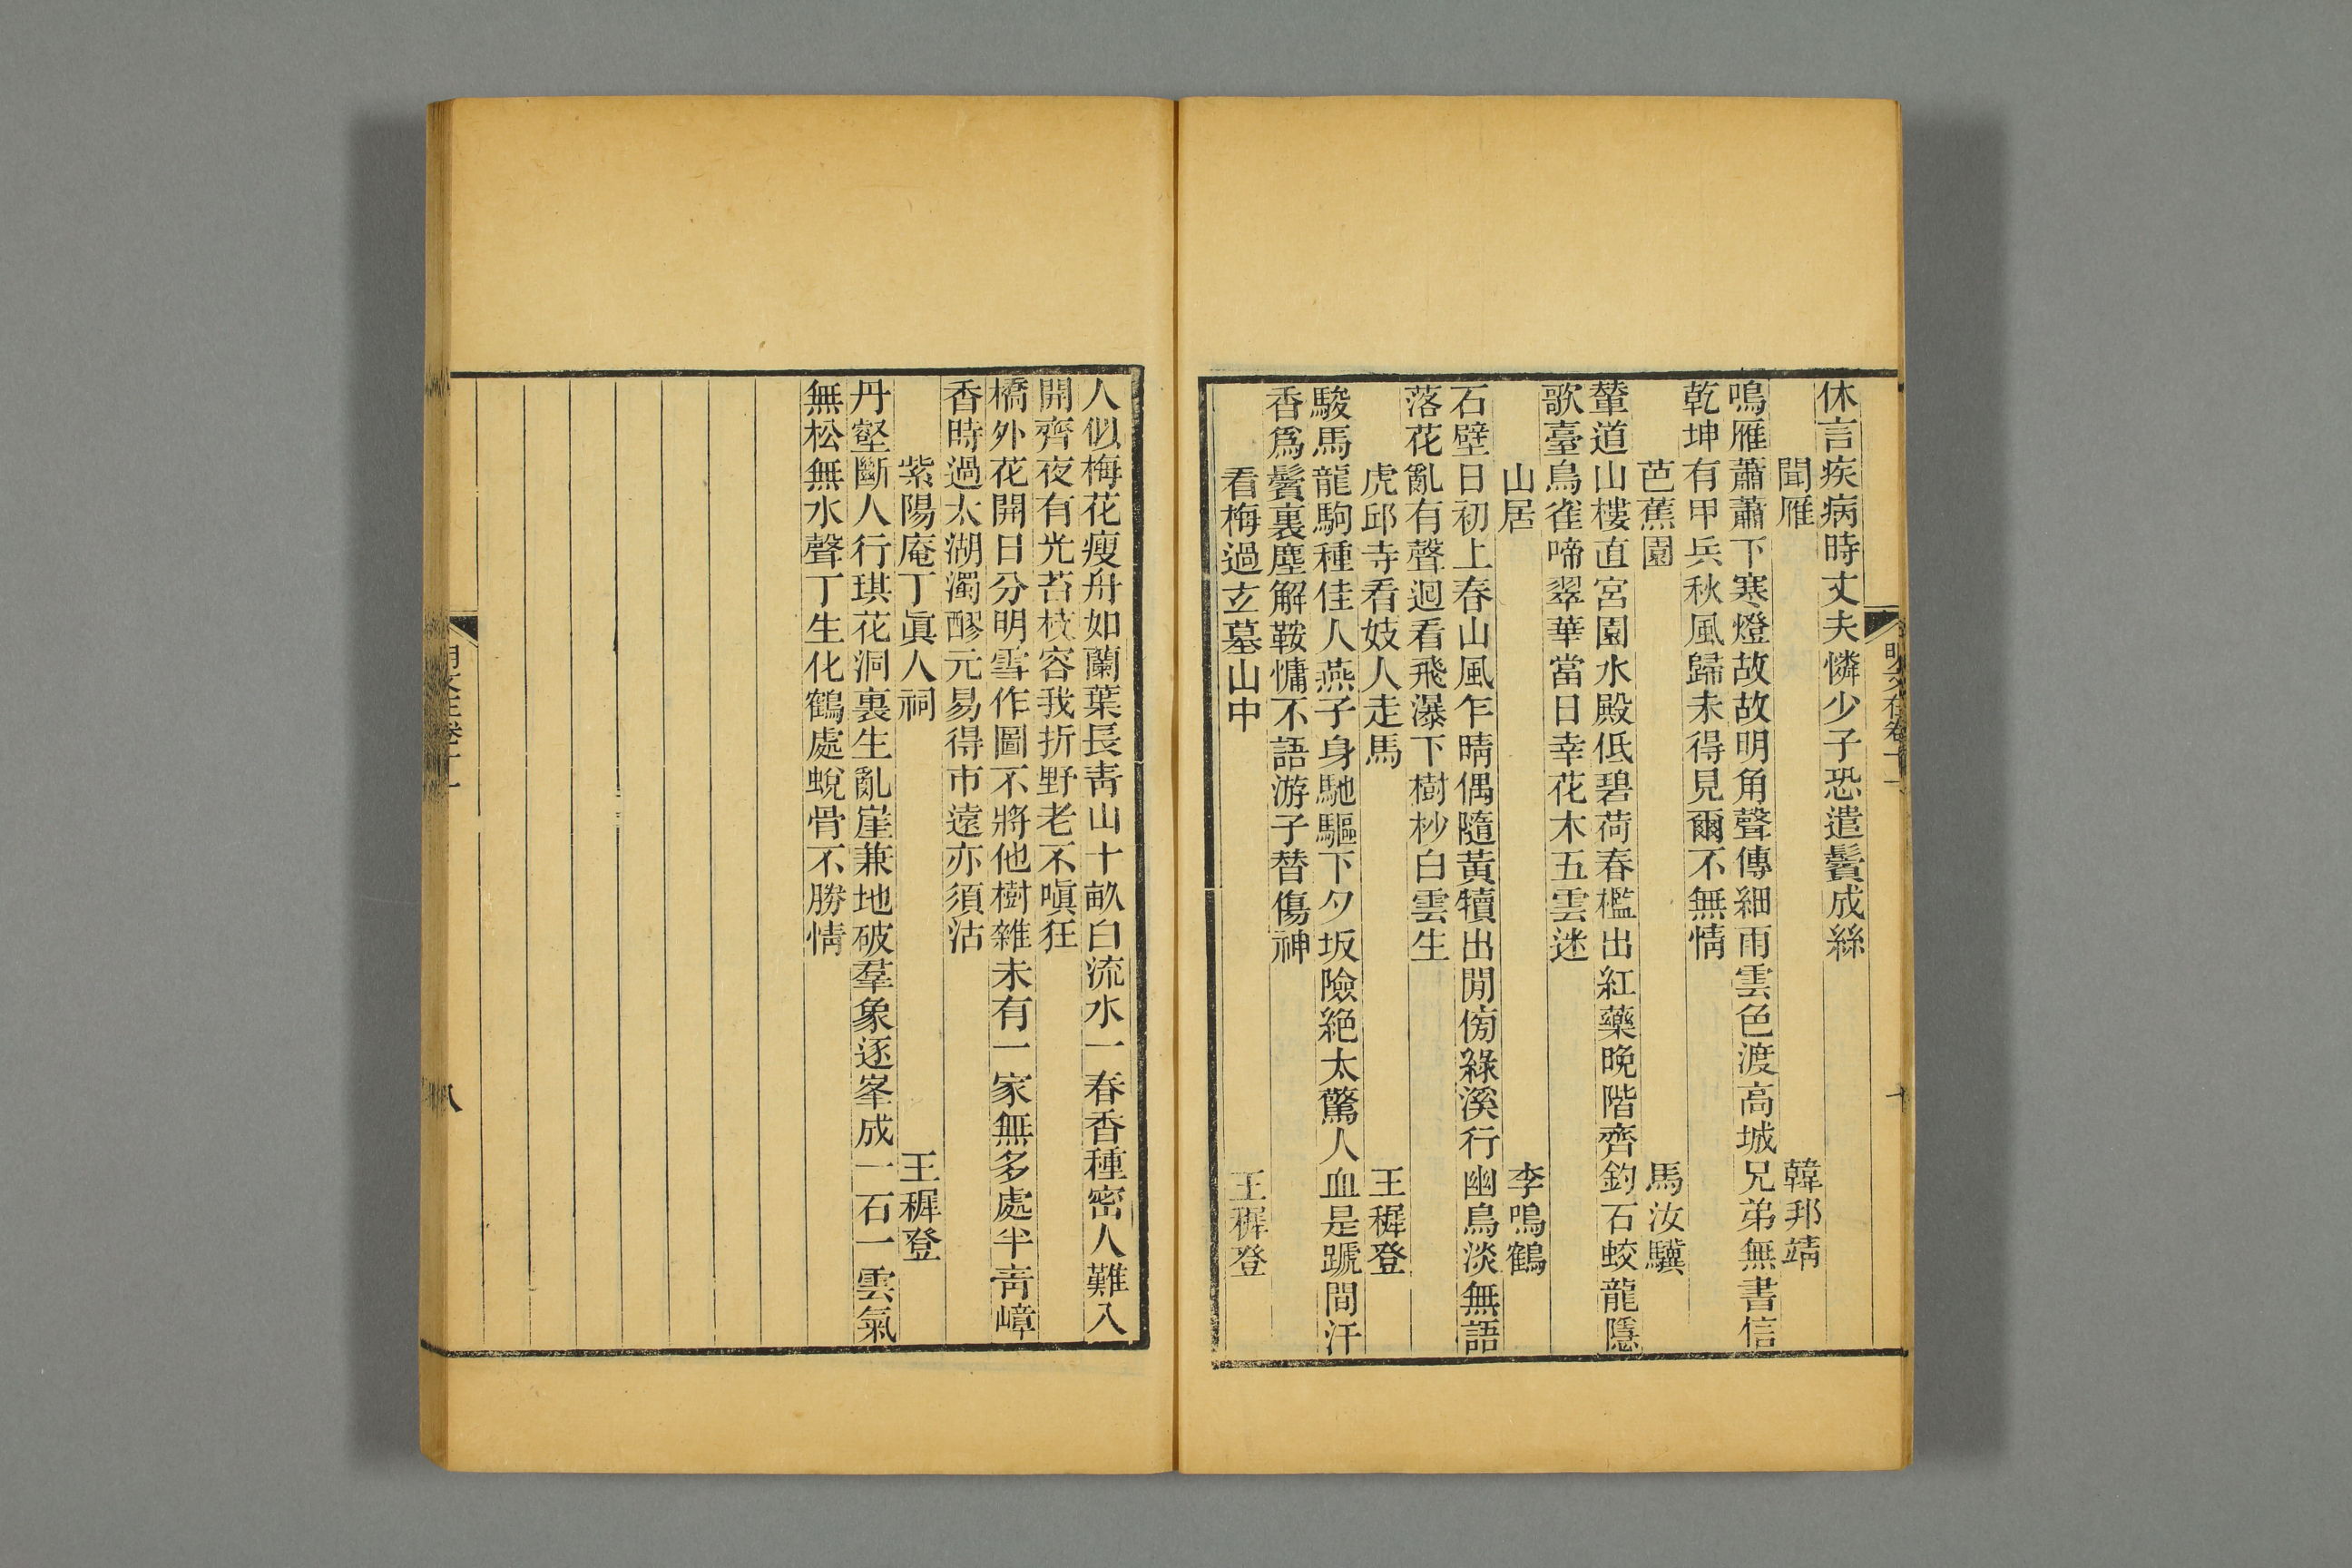 休言疾病時丈夫憐少子恐遣鬢成絲
聞雁 韓邦靖
鳴雁蕭蕭下寒燈故故明角聲傳細雨雲色渡高城兄弟無書信
乾坤有甲兵秋風歸未得見爾不無情
芭蕉園 馬汝驥
輦道山樓直宮園水殿低碧荷春檻出紅藥晚階齊釣石蛟龍隱
歌臺鳥雀啼翠華當日幸花木五雲迷
山居 李鳴鶴
石壁日初上春山風乍晴偶隨黃犢出閒傍綠溪行幽鳥淡無語
落花亂有聲迴看飛瀑下樹杪白雲生
虎邱寺看妓人走馬 王穉登
駿馬龍駒種佳人燕子身馳驅下夕坂險絕太驚人血是蹏間汗
香爲鬢裏塵解鞍慵不語游子替傷神
看梅過玄墓山中 王穉登
人似梅花瘦舟如蘭葉長靑山十畝白流水一春香種密人難入
開齊夜有光苔枝容我折野老不嗔狂
橋外花開日分明雪作圖不將他樹雜未有一家無多處半靑嶂
香時過太湖濁醪元易得市遠亦須沽
紫陽庵丁眞人祠 王穉登
丹壑斷人行琪花洞裏生亂崖兼地破羣象逐峯成一石一雲氣
無松無水聲丁生化鶴處蛻骨不勝情
明文在卷十一
八